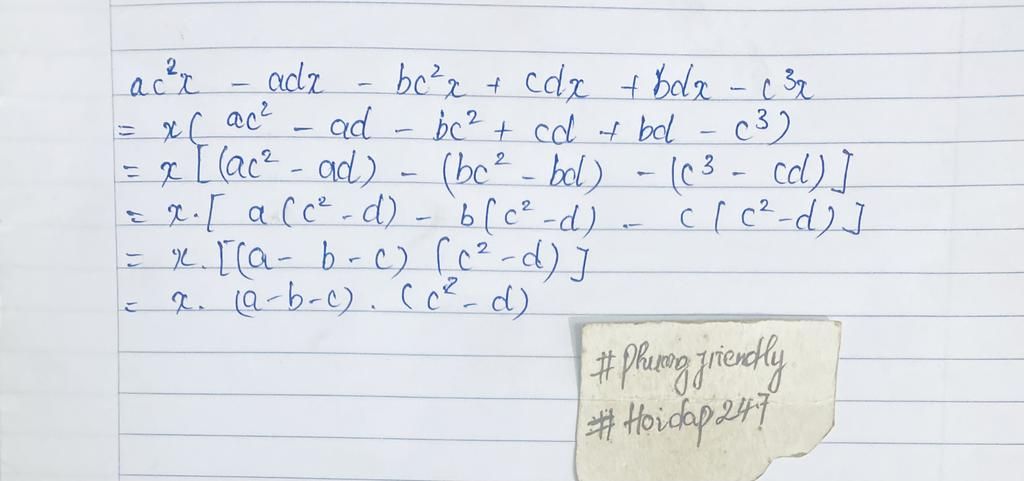 ac²x - adx - bc²x + cdx + bdx - c³x
= x( ac² - ad - bc² + cd + bd - c³)
= x [(ac² - ad) - (bc² - bd) - (c³ - cd)]
= x.[ a(c² - d) - b(c² - d) - c(c² - d)]
= x.[(a - b - c) (c² - d)]
= x. (a - b - c) . (c² - d)
# Phuongfriendly
# Hoidap247